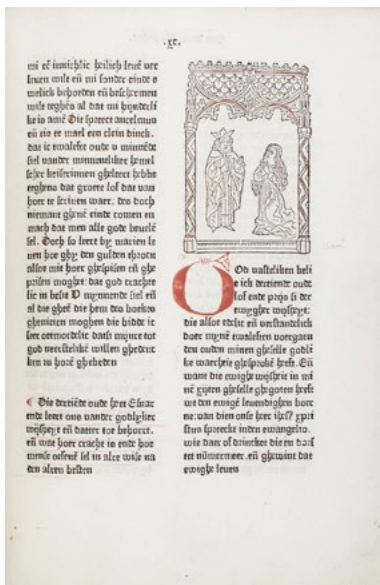 .xc.
mi eñ innichlic heilich leuē ver
leuen wile eñ mi sonder einde o
welick behoeden eñ beschermen
wile teghēs al dat mi hijnderli
ke is amē Die spreect ancelmus
eñ eis te mael een clein dinck.
dat ic ewalefte oude v minnēde
siel vander minneliker hemel
scher keiserinnen gheleert hebbe
teghens dat groete lof dat van
hoer te scriuen waer. des doch
niemant ghenē einde comen en
mach dat men alle gode beuele
sel. Doch so leert by marien le
uen hoe ghy den gulden throen
alsoe mit hoer ghespisen eñ ghe
prisen moghet. dat god crachte
lic in besit O mynnende siel eñ
al die gheē die hem des boekes
ghebruken moghen die bidde ic
seer oetmoedelic datsi mynre tot
god neerstelike willen ghedenc
ken in horē ghebeden
Die dertiēde oude heet Elmac
ende leert ons vander godlyker
wijsheyt eñ daerter toe behoert.
eñ wat hoer crache is ende hoe
mense oefenē sel in alre wise na
den alren besten
God vasteliken beli
e ich dertiende oude
lof ende prijs si der
ewygher wijsheyt:
die alsoe edelic eñ verstandelick
doer myne ewalefsten voergaen
den ouden minen gheselle godli
ke waerheit ghesprokē heeft. Eñ
want die ewighe wijsheit in mi
nē xijten gheselle ghegoten heeft
we den ewigē leuendighen bor
ne: van dien onse heer ihūs xpri
stus spreeckt inden ewangelio.
wie daer of drincket die en dorst
tet nūmermeer. eñ ghewint dat
ewighe leuen